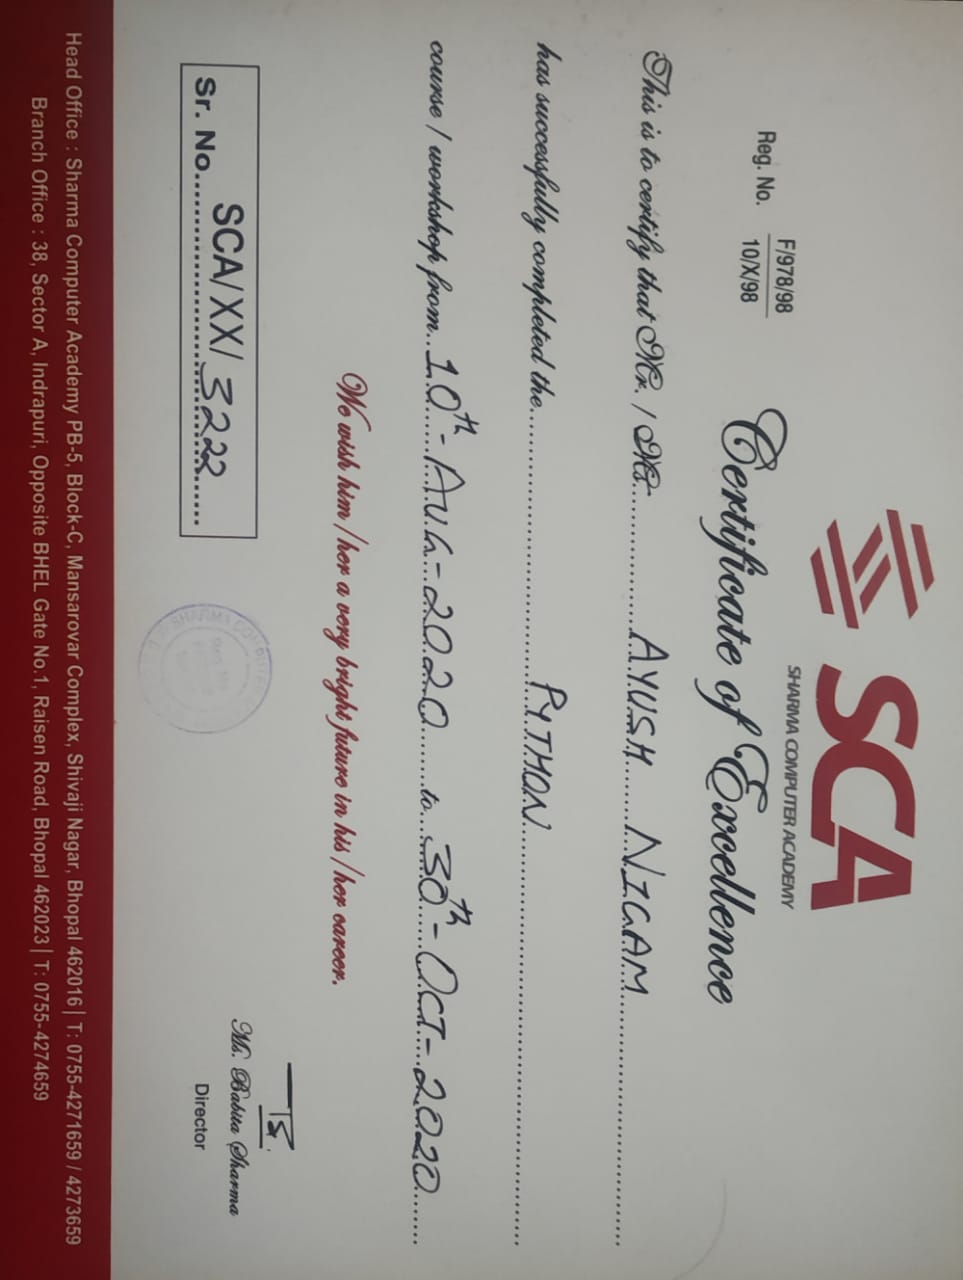 SCA
SHARMA COMPUTER ACADEMY
Reg. No. F/978/98
10/X/98
Certificate of Excellence
This is to certify that Mr. / Ms. AYUSH NIGAM
has successfully completed the PYTHON
course / workshop from 10th-AUG-2020 to 30th-OCT-2020
We wish him / her a very bright future in his / her career.
Sr. No. SCA/XX/3222
Ms. Babita Sharma
Director
Head Office : Sharma Computer Academy PB-5, Block-C, Mansarovar Complex, Shivaji Nagar, Bhopal 462016 | T: 0755-4271659 / 4273659
Branch Office : 38, Sector A, Indrapuri, Opposite BHEL Gate No.1, Raisen Road, Bhopal 462023 | T: 0755-4274659